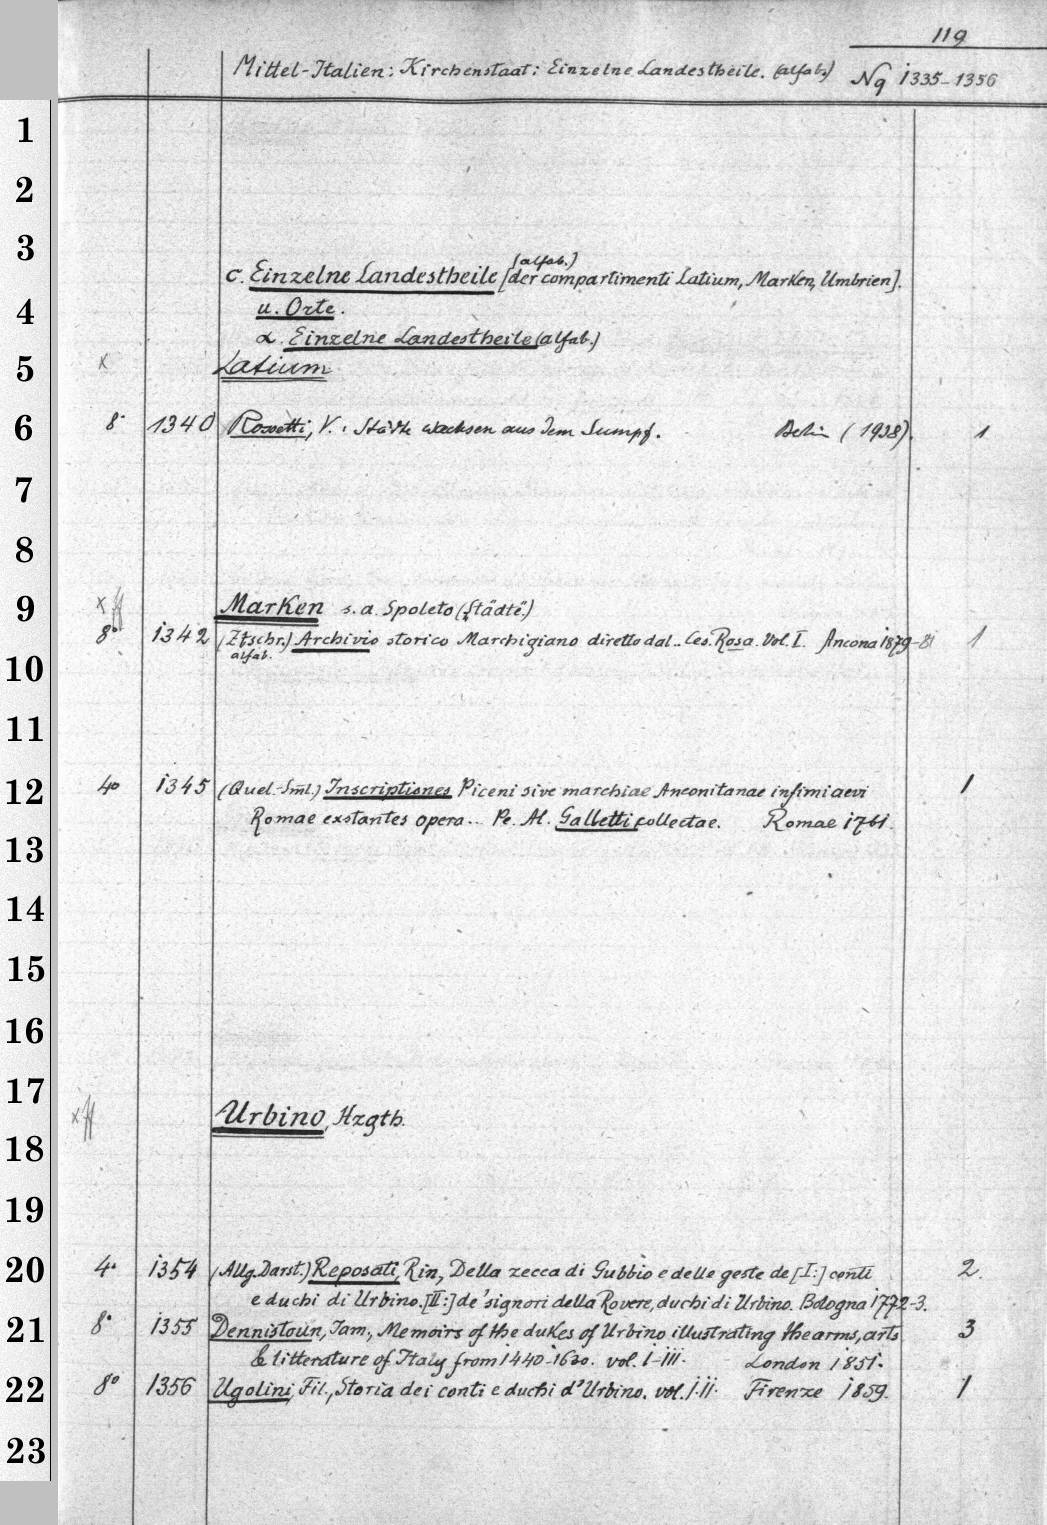 119
Mittel-Italien: Kirchenstaat: Einzelne Landestheile. (alfab.) Nq 1335-1356
1
2
3
[alfab.]
c. Einzelne Landestheile [der compartimenti Latium, Marken, Umbrien].
4 u. Orte.
α. Einzelne Landestheile (alfab.)
5 x Latium
6 8° 1340 Rossetti, V.: Städte wachsen aus dem Sumpf. Berlin (1938). 1
7
8
9 x Marken s. a. Spoleto (Städte)
8° 1342 (Ztschr.) Archivio storico Marchigiano diretto dal.. Ces. Rosa. Vol. I. Ancona 1879-81 1
alfab.
10
11
12 4° 1345 (Quel.-Sml.) Inscriptiones Piceni sive marchiae Anconitanae infimi aevi 1
Romae exstantes opera... Pe. Al. Galletti collectae. Romae 1761.
13
14
15
16
17
x Urbino, Hzgth.
18
19
20 4° 1354 (Allg. Darst.) Reposati, Rin., Della zecca di Gubbio e delle geste de [I:] conti 2.
e duchi di Urbino. [II:] de' signori della Rovere, duchi di Urbino. Bologna 1772-3.
21 8° 1355 Dennistoun, Jam., Memoirs of the dukes of Urbino illustrating the arms, arts 3
& litterature of Italy from 1440-1630. vol. I-III. London 1851.
22 8° 1356 Ugolini, Fil., Storia dei conti e duchi d'Urbino. vol. I.II. Firenze 1859. 1
23